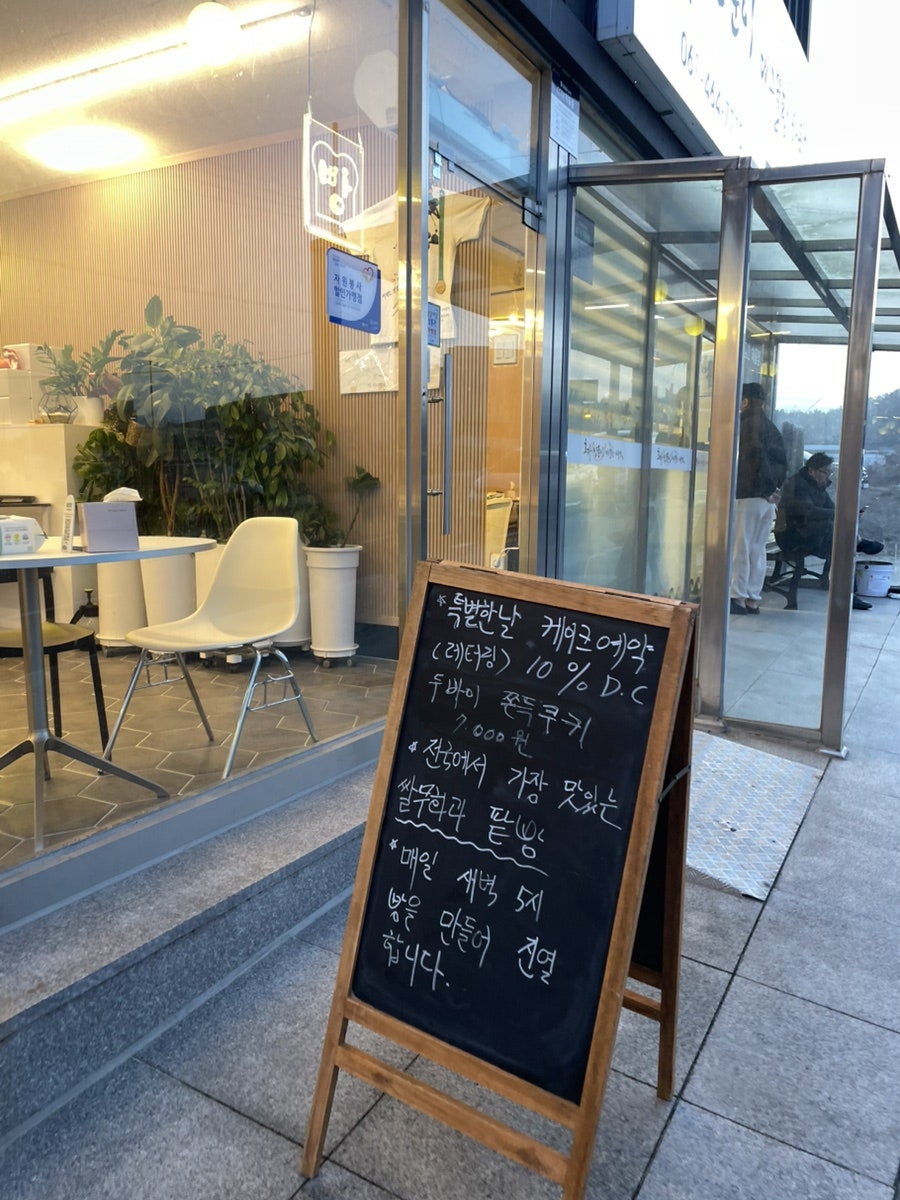 빵
자원봉사
할인가맹점
*특별한날 케이크예약
(레터링) 10% D.C
두바이 쫀득쿠키
7.000원
*전국에서 가장 맛있는
쌀무화과 팥빵
*매일 새벽 5시
빵을 만들어 진열
합니다.